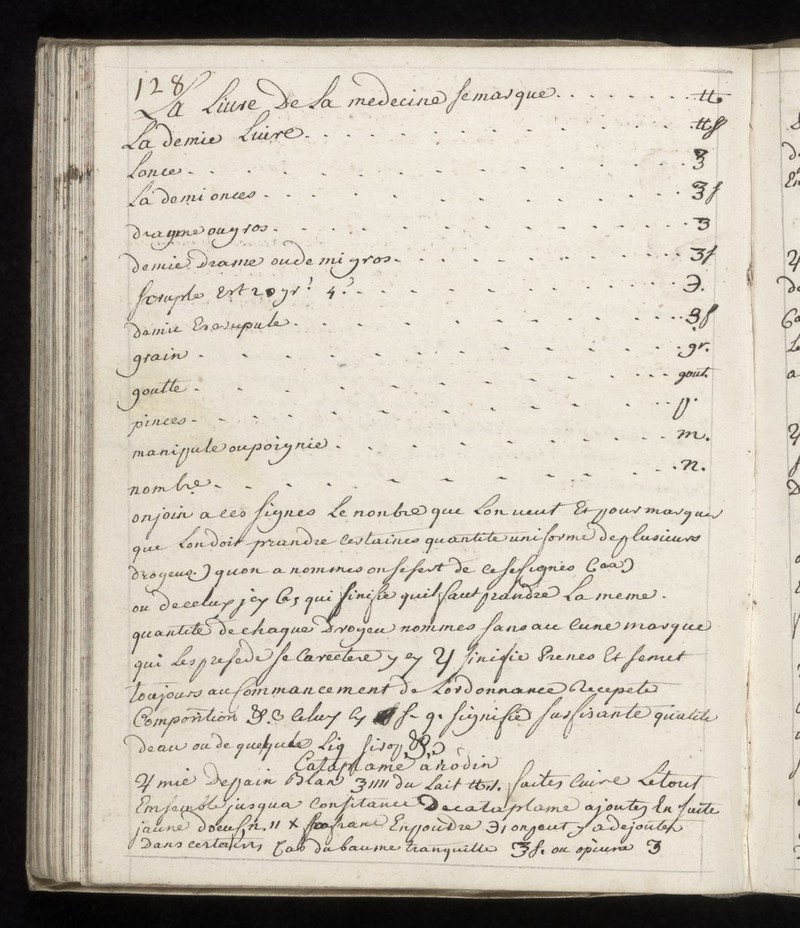 128
La Livre De La medecine semarque . . . . . . . ℔
La demie Livre . . . . . . . . . . . ℔ſ
Lonce . . . . . . . . . . . . ℥
La demi onces . . . . . . . . . . . ℥ſ
dragme ou gros . . . . . . . . . . . ʒ
demie Drame oudemi gros . . . . . . . . . ʒſ
scruple Est 20 gr. . . . . . . . . . ℈.
demie Escrupule . . . . . . . . . . . ℈ſ
grain . . . . . . . . . . . . gr.
goutte . . . . . . . . . . . . gout.
pinces . . . . . . . . . . . . p.
manipule oupoignie . . . . . . . . . m.
nombre . . . . . . . . . . . n.
onjoin a ces signes Le nonbre que Lon veut Et pour marquer
que Londoit prandre certaines quantite uniforme deplusieurs
drogeuz.) quon a nommes onsesert de ce signes (aa)
ou deceluy jcy qui sinifie quil faut prandre La meme.
quantite de chaque Drogeu nommes sans au cune marque
qui Les presede se Carectere y cy ♃ sinifie Prenes Et semet
toujours au Commancement de Lordonnance Recepete
Composition celuy cy s. q. signifie suffisante quatite
deau ou de quelque Liq sirop
Cataplame anodin
♃ mie Depain Blan ℥ IIII du Lait faites Cuire Letout
Ensemble jusqua Consitance Decataplame ajoutes En suite
jaune doeuf n. II X saffrane Enpoudre ℈ı on peut y adejouter
Dans certains Cas du baume tranquille ℥ſ. ou opium ʒ